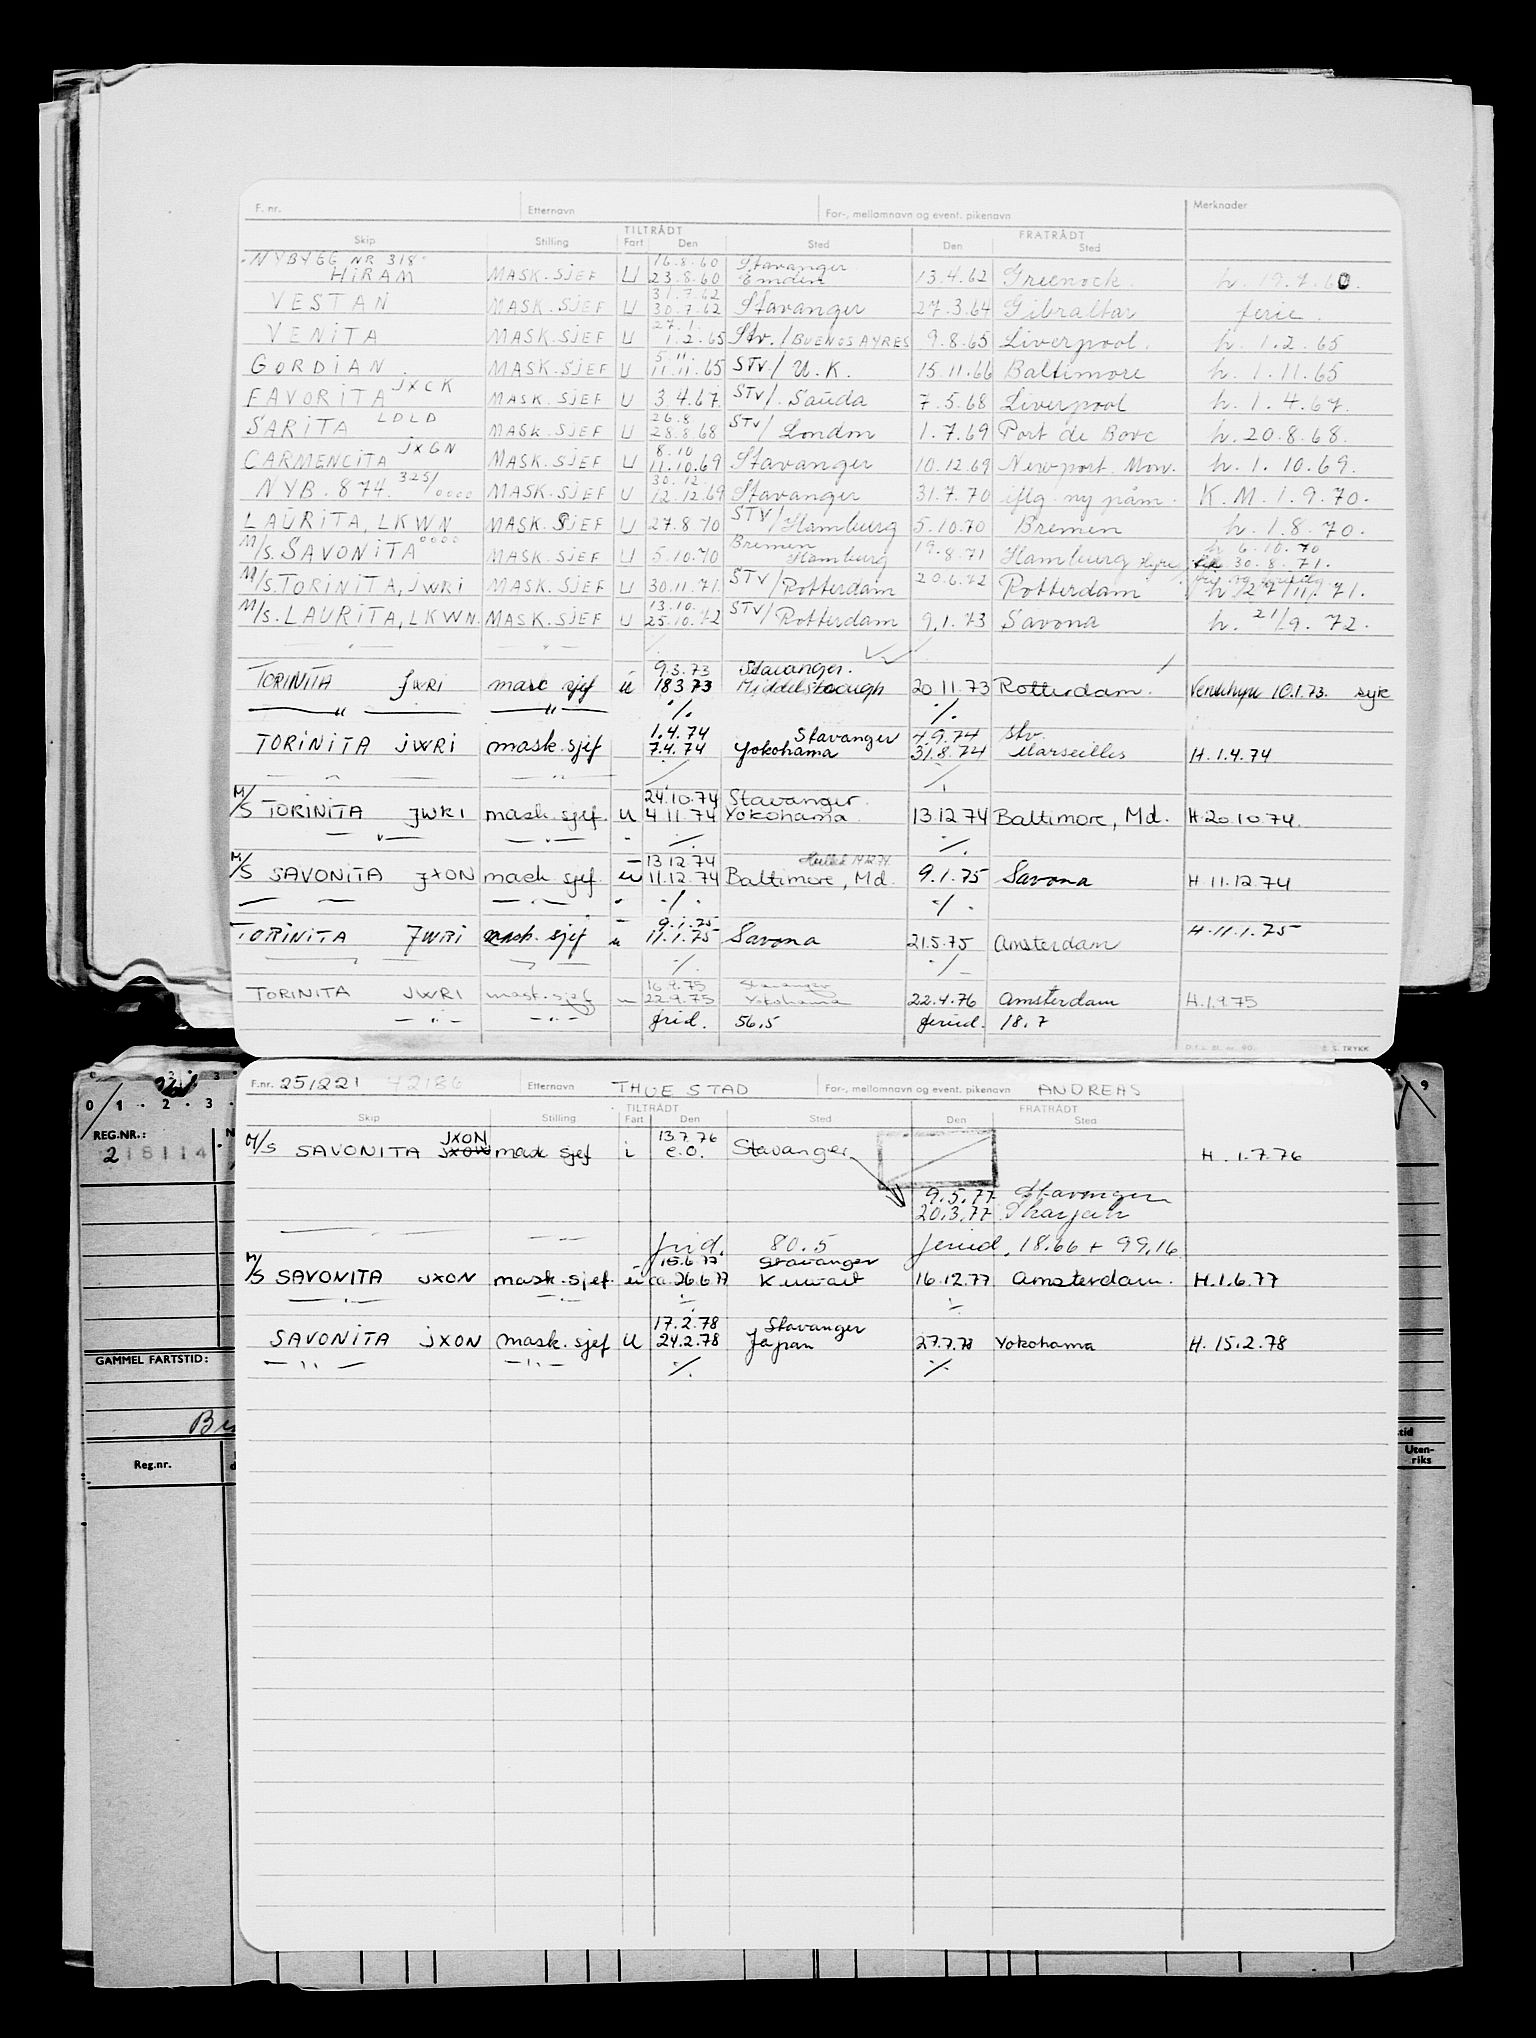 F. nr. Etternavn For-, mellomnavn og event. pikenavn Merknader
TILTRÅDT FRATRÅDT
Skip Stilling Fart Den Sted Den Sted
"NYBYGG NR 318" 16.8.60 Stavanger
HIRAM MASK.SJEF U 23.8.60 Emden 13.4.62 Greenock. h. 19.7.60.
31.7.62
VESTAN MASK.SJEF U 30.7.62 Stavanger 27.3.64 Gibraltar ferie.
27.1.
VENITA MASK.SJEF U 1.2.65 Stv./BUENOS AYRES 9.8.65 Liverpool. h. 1.2.65
5.11.
GORDIAN. MASK.SJEF U 11.11.65 STV/ U.K. 15.11.66 Baltimore h. 1.11.65
FAVORITA JXCK MASK.SJEF U 3.4.67. STV/. Sauda 7.5.68 Liverpool h. 1.4.67.
26.8
SARITA LDLD MASK.SJEF U 28.8.68 STV/ London 1.7.69 Port de Bouc h. 20.8.68.
8.10
CARMENCITA JXGN MASK.SJEF U 11.10.69 Stavanger 10.12.69 Newport. Mon. h. 1.10.69.
30.12
NYB. 874. 325/0000 MASK.SJEF U 12.12.69 Stavanger 31.7.70 iflg. ny påm. K.M. 1.9.70.
LAURITA, LKWN MASK.SJEF U 27.8.70 STV/Hamburg 5.10.70 Bremen h. 1.8.70.
M/S. SAVONITA 0000 MASK.SJEF U 5.10.70 Bremen Hamburg 19.8.71 Hamburg Hyre h 6.10.70
30.8.71.
M/S. TORINITA, JWRI MASK.SJEF U 30.11.71. STV/Rotterdam 20.6.72 Rotterdam h. 27/11.71.
13.10.
M/S. LAURITA, LKWN. MASK.SJEF U 25.10.72 STV/ Rotterdam 9.1.73 Savona h. 21/9.72.
9.3.73 Stavanger.
TORINITA JWRI mask sjef u 18373 Middelsbourgh 20.11.73 Rotterdam. Ventehyre 10.1.73. syk
— " — — " — ·/. ·/.
1.4.74 Stavanger 4.9.74 Stv.
TORINITA JWRI mask.sjef 7.4.74 Yokohama 31.8.74 Marseilles H.1.4.74
— " — — " — ·/. ·/.
24.10.74 Stavanger.
M/S TORINITA JWRI mask.sjef. U 4.11.74 Yokohama. 13.12.74 Baltimore, Md. H.20.10.74.
— " — — " — " ·/. ·/.
13.12.74
M/S SAVONITA JXON mask sjef. u 11.12.74 Baltimore, Md. 9.1.75 Savona H.11.12.74
— — — " — " ·/. ·/.
9.1.75
TORINITA JWRI mask. sjef u 11.1.75 Savona 21.5.75 Amsterdam H.11.1.75
·/. ·/.
16.9.75 Stavanger
TORINITA JWRI mask.sjef u 22.9.75 Yokohama 22.4.76 Amsterdam H.1.9.75
— " — — " — frid. 56,5 feried. 18.7
D.f.s. Bl. nr. 90. E. S. TRYKK
F.nr. 251221 42186 Etternavn THUESTAD For-, mellomnavn og event. pikenavn ANDREAS
TILTRÅDT FRATRÅDT
Skip Stilling Fart Den Sted Den Sted
JXON 13.7.76
M/S SAVONITA JXOW mask sjef i e.o. Stavanger H. 1.7.76
9.5.77 Stavanger
20.3.77 Sharjah
frid. 80.5 feried. 18.66 + 99,16
15.6.77 Stavanger
M/S SAVONITA JXON mask.sjef. u ca.26.6.77 Kuwait 16.12.77 Amsterdam. H.1.6.77
— " — — " — ·/. ·/.
17.2.78 Stavanger
SAVONITA JXON mask.sjef U 24.2.78 Japan 27.7.78 Yokohama H. 15.2.78
— " — — " — ·/. ·/.
0 1 . 2 . 3 9
REG.NR.:
218114
GAMMEL FARTSTID:
Reg.nr.
Uten-
riks